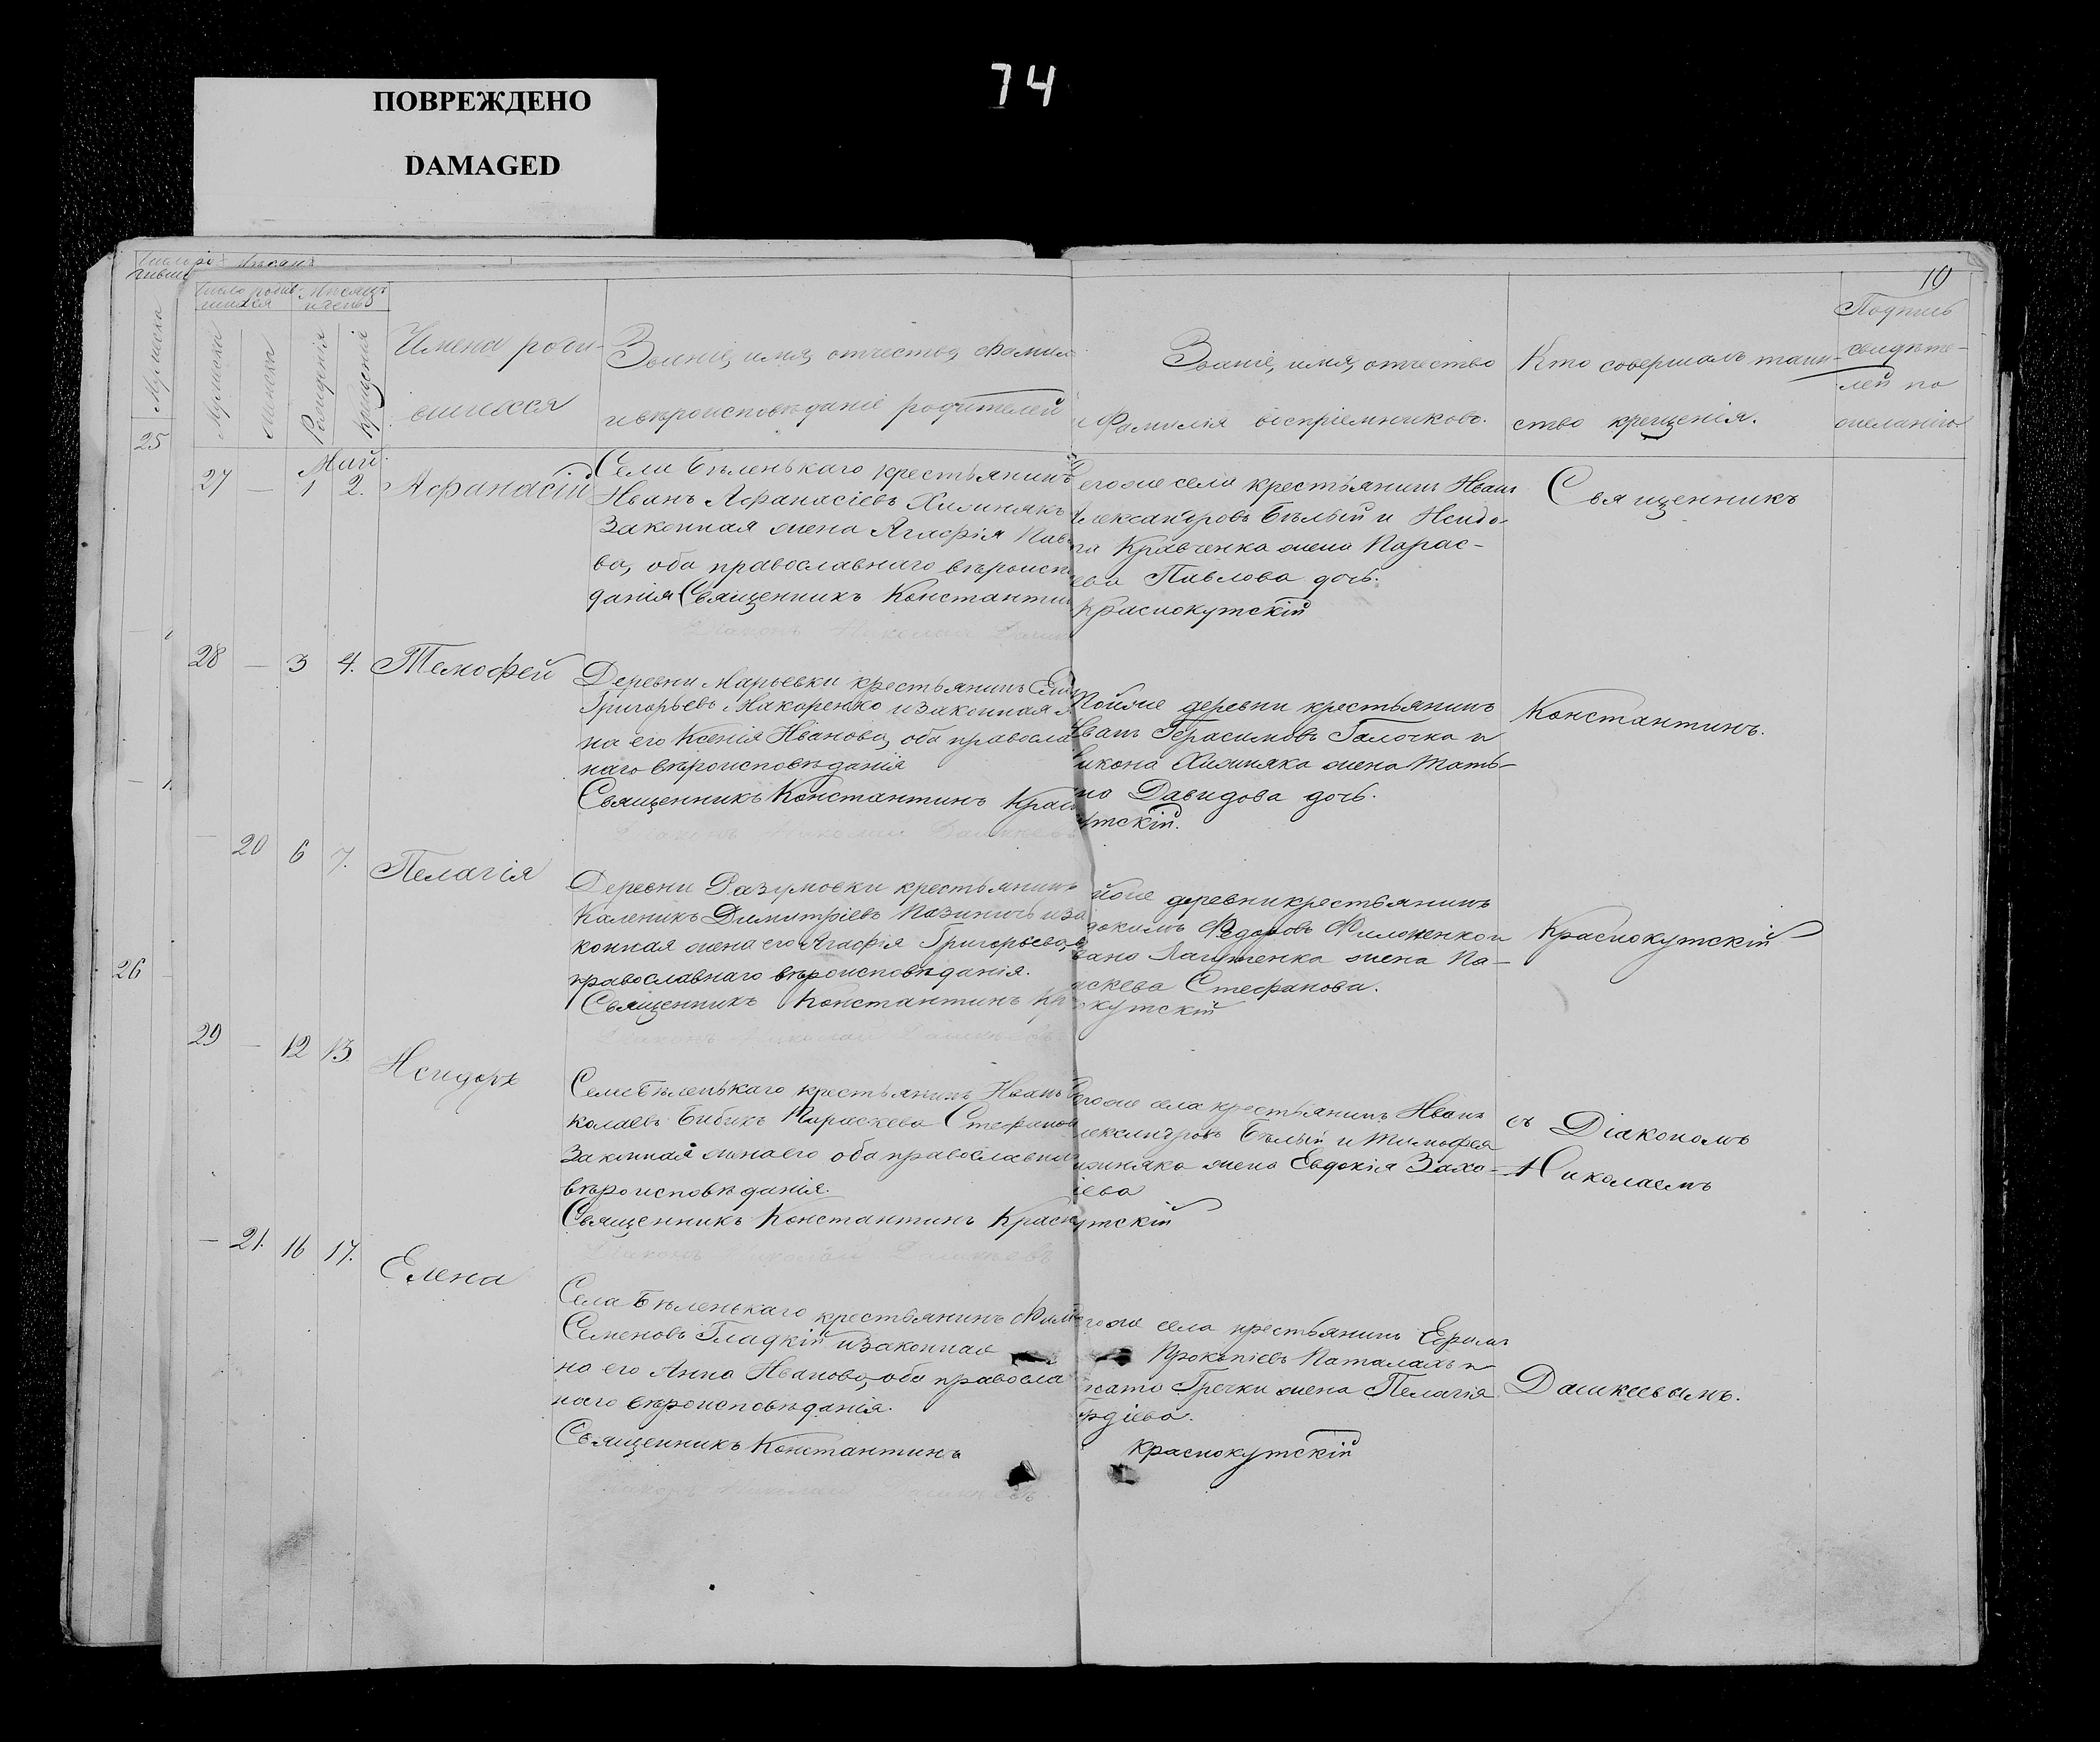 74
ПОВРЕЖДЕНО
DAMAGED
10
Число родив-
шихся
Мѣсяцъ
и день
Мужеска
Мужеска
Женска
Рожденія
Крещенія
Имена роди-
вшихся
Званіе, имя, отчество, фамил
и вѣроисповѣданіе родителей
Званіе, имя, отчество
и фамилія воспріемниковъ.
Кто совершалъ таин-
ство крещенія.
Подпись
свидѣте-
лей по
желанію
25
Май.
27 — 1 2. Афанасій
Села Бѣленькаго крестьянинъ
Иванъ Афанасіевъ Хижнякъ
Законная жена Агафія Пав
ва, оба православнаго вѣроисп
данія Священникъ Константин
Діаконъ Николай Дашк
егоже села крестьянинъ Иванъ
Александровъ Бѣлый и Исидо-
ра Кравченка жена Парас-
ева Павлова дочь.
Краснокутскій
Священникъ
28 — 3 4. Тимофей
Деревни Марьевки крестьянинъ
Григорьевъ Макаренко и законная
на его Ксенія Иванова, оба правосла
наго вѣроисповѣданія
Священникъ Константинъ Красн
Діаконъ Николай Дашкеев
Тойже деревни крестьянинъ
Иванъ Герасимовъ Галочка и
икона Хижняка жена Тать-
на Давидова дочь.
утскій.
Константинъ.
— 20 6 7. Пелагія
Деревни Разумовки крестьянинъ
Каленикъ Димитріевъ Позиничъ и за
конная жена его Агафія Григорьева,
православнаго вѣроисповѣданія.
Священникъ Константинъ Кр
Діаконъ Николай Дашкеевъ
йже деревни крестьянинъ
докимъ Федоровъ Филоненко и
вана Лагутенка жена Па-
аскева Стефанова.
окутскій
Краснокутскій
26
29 — 12 13 Исидоръ
Села Бѣленькаго крестьянинъ Иванъ
колаевъ Бибикъ Параскева Стефанов
Законная жена его оба православна
вѣроисповѣданія.
Священникъ Константинъ Красн
Діаконъ Николай Дашкеевъ
огоже села крестьянинъ Иванъ
лександровъ Бѣлый и Тимофея
ижняка жена Евдокія Заха-
іева
утскій
съ Діакономъ
Николаемъ
— 21. 16 17. Елена
Села Бѣленькаго крестьянинъ Фили
Семеновъ Гладкій и законная
на его Анна Иванова, оба правосла
наго вѣроисповѣданія.
Священникъ Константинъ
Діаконъ Николай Дашкеевъ.
гоже села крестьянинъ
Прокопіевъ Паталахъ и
Гречки жена Пелагія
рдіева.
Краснокутскій
Дашкеевымъ.